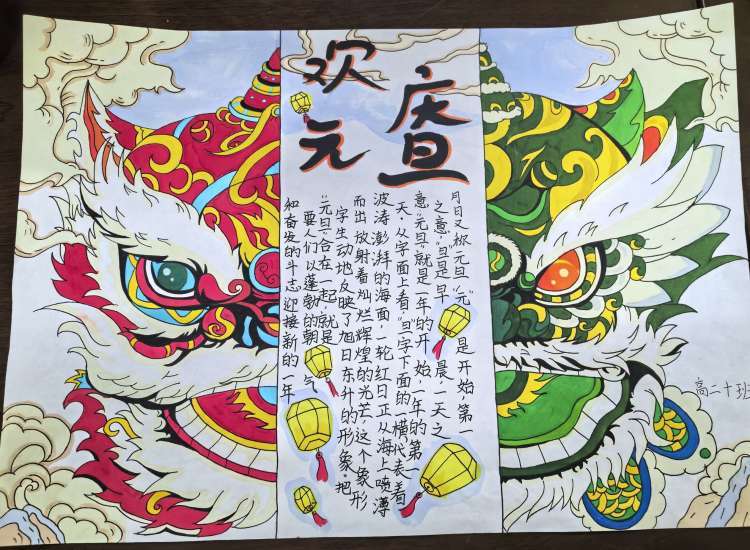 欢庆
元旦
月日又称元旦，"元"是开始第一
之意，"旦"是早晨一天之
意"元旦"就是一年的开始，一年的第一
天，从字面上看"旦"字下面的一横代表着
波涛澎湃的海面，一轮红日正从海上喷薄
而出放射着灿烂辉煌的光芒，这个象形
字生动地反映了旭日东升的形象，把
"元旦"合在一起，就是
要人们以蓬勃的朝气
和奋发的斗志迎接新的一年
高二十班